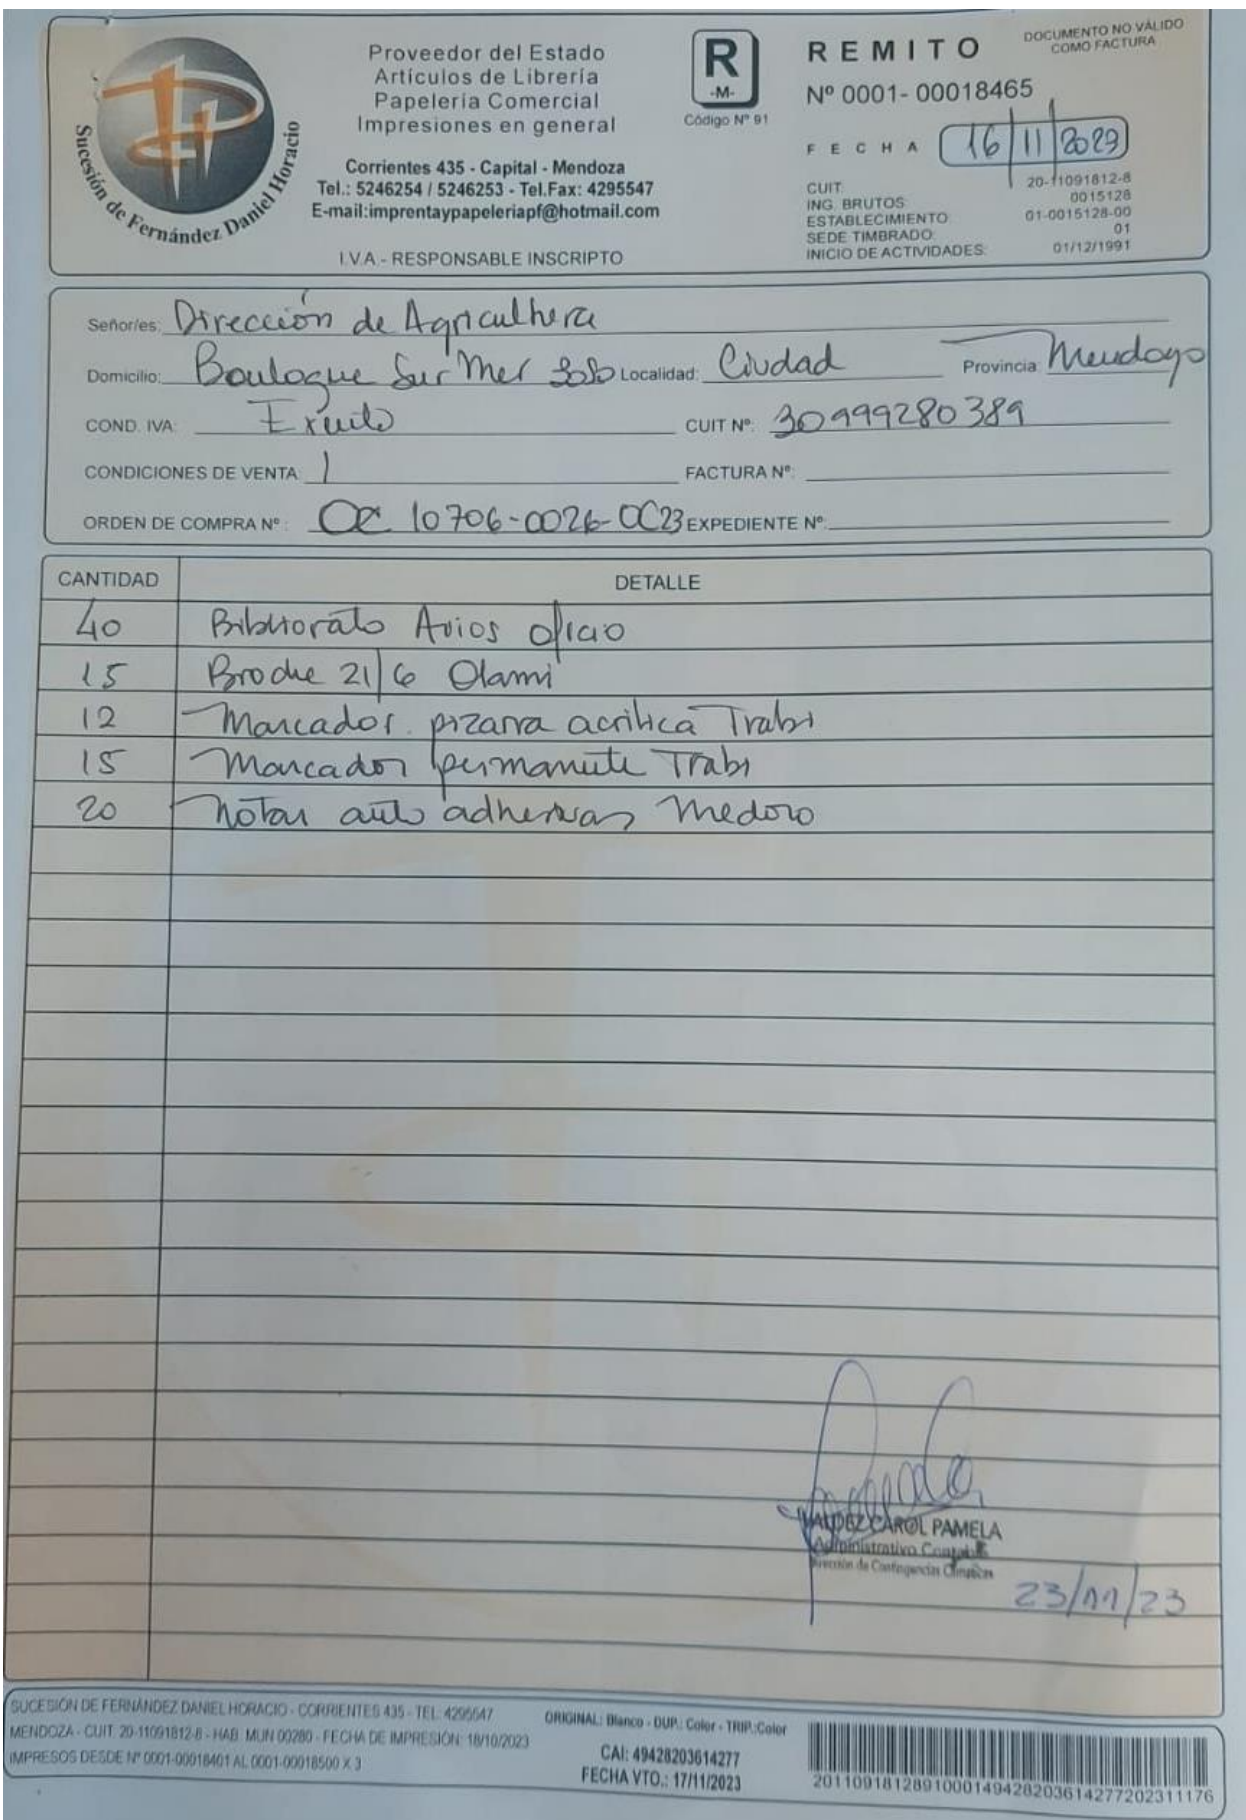 Sucesión de Fernández Daniel Horacio
Proveedor del Estado
Artículos de Librería
Papelería Comercial
Impresiones en general
Corrientes 435 - Capital - Mendoza
Tel.: 5246254 / 5246253 - Tel.Fax: 4295547
E-mail:imprentaypapeleriapf@hotmail.com
I.V.A.- RESPONSABLE INSCRIPTO
R
-M-
Código Nº 91
REMITO
DOCUMENTO NO VÁLIDO
COMO FACTURA
Nº 0001- 00018465
FECHA 16/11/2023
CUIT: 20-11091812-8
ING. BRUTOS: 0015128
ESTABLECIMIENTO: 01-0015128-00
SEDE TIMBRADO: 01
INICIO DE ACTIVIDADES: 01/12/1991
Señor/es: Dirección de Agricultura
Domicilio: Boulogne Sur Mer 3050 Localidad: Ciudad Provincia: Mendoza
COND. IVA: Exento CUIT Nº: 30999280389
CONDICIONES DE VENTA: FACTURA Nº:
ORDEN DE COMPRA Nº: OC 10706-0026-OC23 EXPEDIENTE Nº:
CANTIDAD DETALLE
40 Bibliorato Avios oficio
15 Broche 21/6 Olami
12 Marcador pizarra acrilica Trabi
15 Marcador permanente Trabi
20 Notas auto adhesivas Medoro
VALDEZ CAROL PAMELA
Administrativo Contable
Dirección de Contingencias Climáticas
23/11/23
SUCESIÓN DE FERNÁNDEZ DANIEL HORACIO - CORRIENTES 435 - TEL. 4295547
MENDOZA - CUIT: 20-11091812-8 - HAB. MUN 00280 - FECHA DE IMPRESIÓN: 18/10/2023
IMPRESOS DESDE Nº 0001-00018401 AL 0001-00018500 X 3
ORIGINAL: Blanco - DUP.: Color - TRIP.:Color
CAI: 49428203614277
FECHA VTO.: 17/11/2023
2011091812891000149428203614277202311176